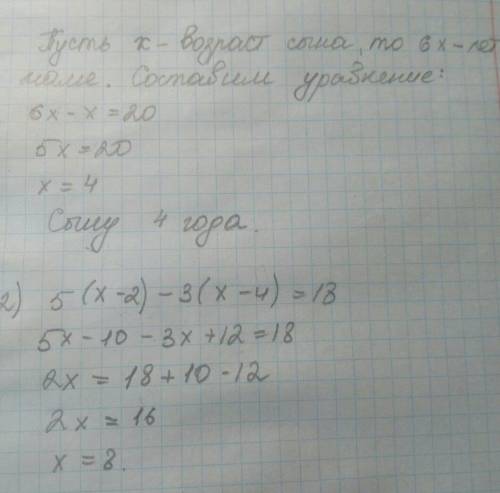 Пусть x - возраст сына, то 6x - лет
маме. Составим уравнение:
6x - x = 20
5x = 20
x = 4
Сыну 4 года.
2) 5(x-2) - 3(x-4) = 18
5x - 10 - 3x + 12 = 18
2x = 18 + 10 - 12
2x = 16
x = 8.